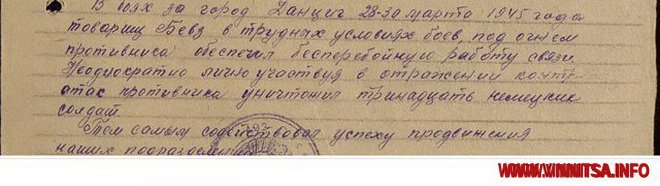 В боях за город Данциг 28-30 марта 1945 года
товарищ Бевз в трудных условиях боев, под огнем
противника обеспечил бесперебойную работу связи.
Неоднократно лично участвуя в отражении контр-
атак противника уничтожил тринадцать немецких
солдат.
Тем самым содействовал успеху продвижения
наших подразделений
WWW.VINNITSA.INFO